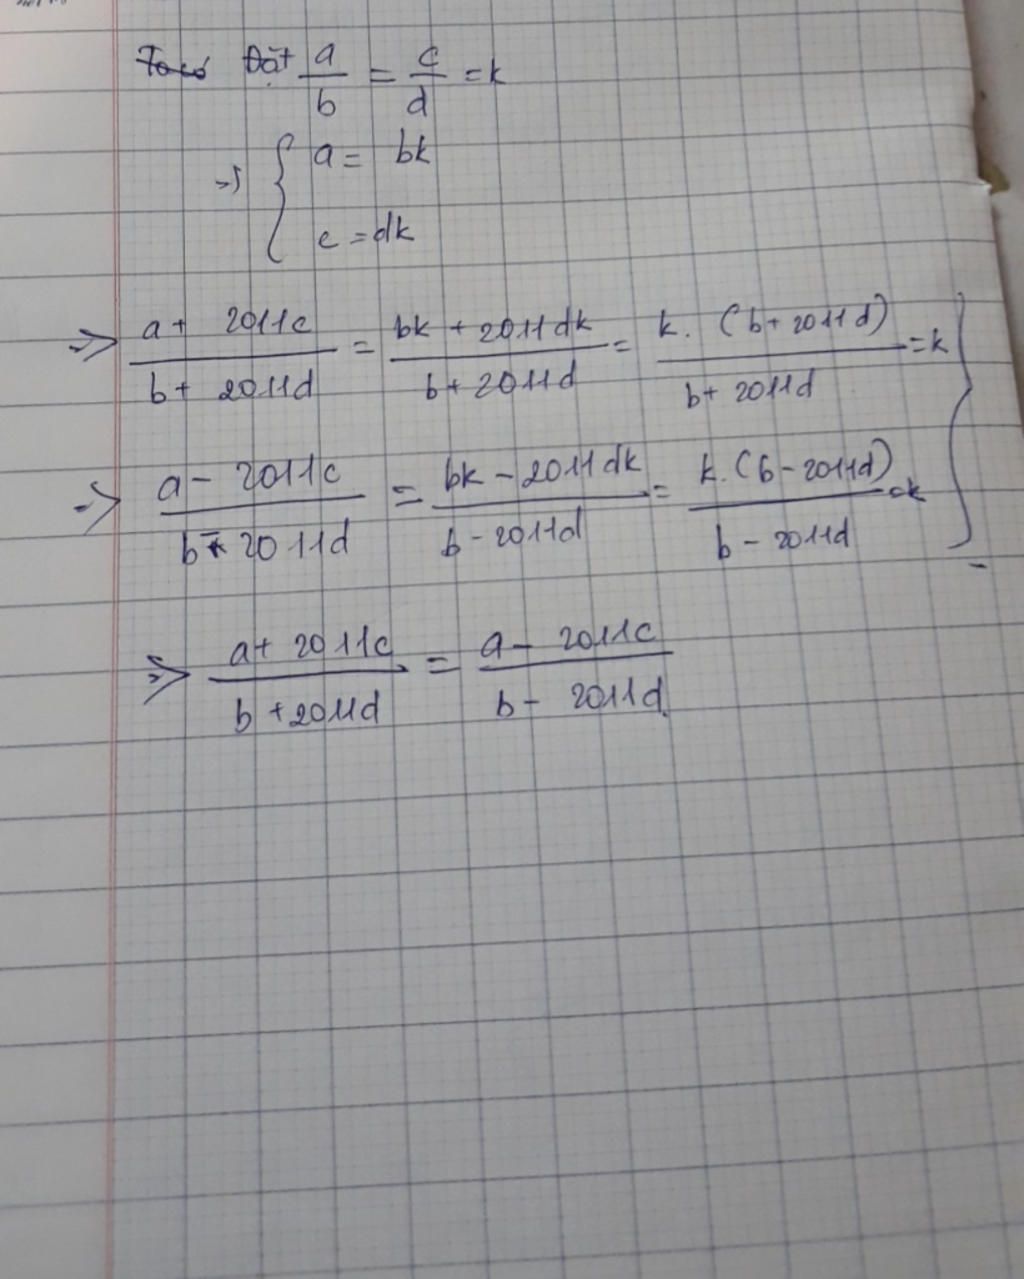 Đặt a/b = c/d = k
=> { a = bk
c = dk
=> (a + 2011c)/(b + 2011d) = (bk + 2011dk)/(b + 2011d) = (k. (b + 2011d))/(b + 2011d) = k
=> (a - 2011c)/(b - 2011d) = (bk - 2011dk)/(b - 2011d) = (k. (b - 2011d))/(b - 2011d) = k
=> (a + 2011c)/(b + 2011d) = (a - 2011c)/(b - 2011d)